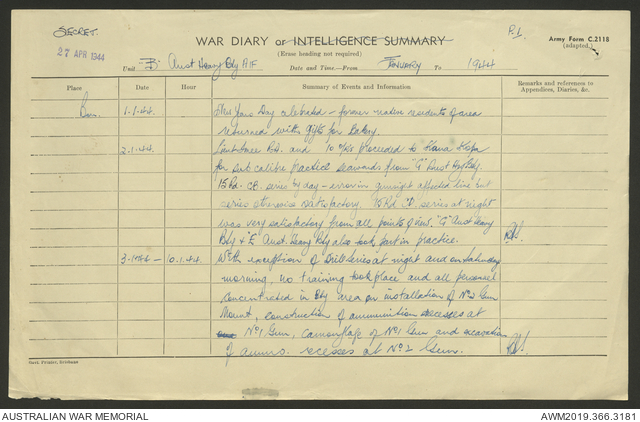 SECRET.
P.1.
WAR DIARY or INTELLIGENCE SUMMARY
(Erase heading not required)
Army Form C.2118
(adapted.)
27 APR 1944
Unit "B" Aust Heavy Bty AIF
Date and Time—From JANUARY To 1944
Place
Date
Hour
Summary of Events and Information
Remarks and references to Appendices, Diaries, &c.
1.1.44.
New Years Day celebrated - former native residents of area
returned with gifts for Battery.
2.1.44.
Lieut R.A. and 10 ORs proceeded to
for sub calibre practice seawards from "G" Aust Hvy Bty.
15 Rd. CB. series by day - error in gunsight affected line but
series otherwise satisfactory. 15 Rd series at night
was very satisfactory from all points of view. "G" Aust Heavy
Bty & "E" Aust. Heavy Bty also took part in practice.
3.1.44 - 10.1.44.
With exception of Drill Series at night and on Saturday
morning, no training took place and all personnel
concentrated in Bty area on installation of No2 Gun
Mount, construction of ammunition recesses at
No1 Gun, camouflage of No1 Gun and excavation
of ammo. recesses at No2 Gun.
Govt. Printer, Brisbane
AUSTRALIAN WAR MEMORIAL
AWM2019.366.3181